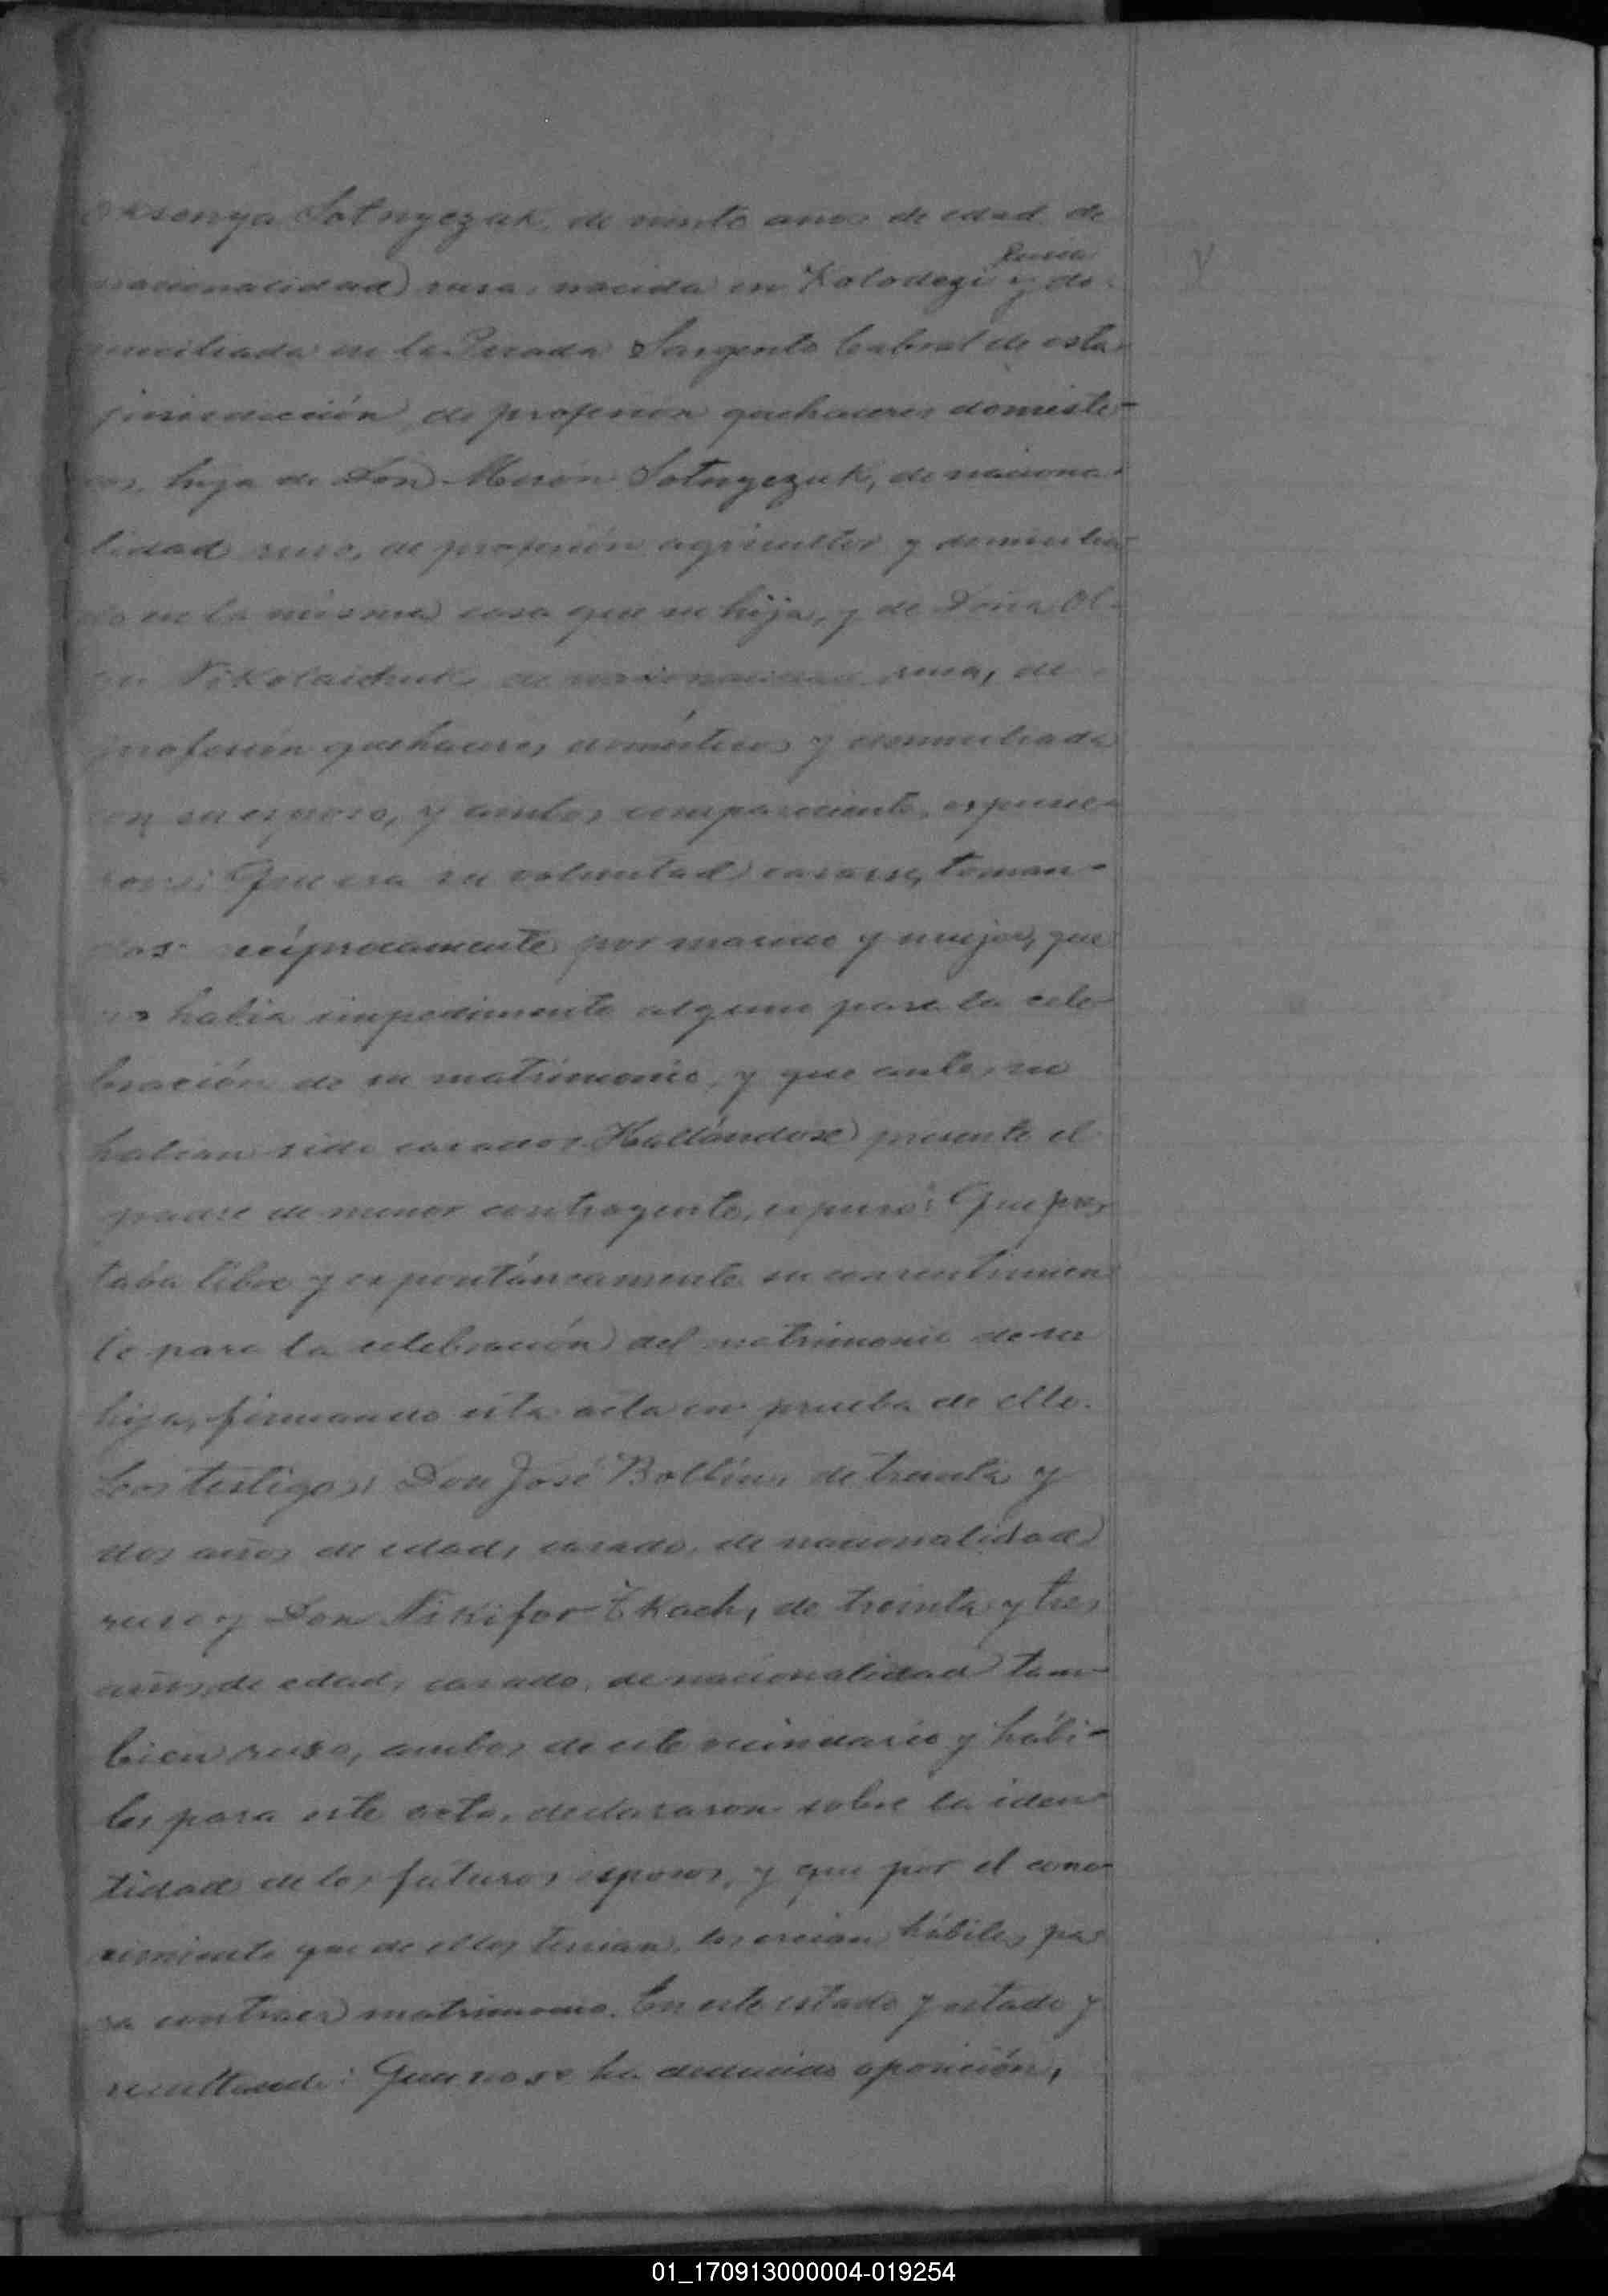 Oksenya Sotnyczuk, de veinte años de edad, de
Rusia
nacionalidad rusa, nacida en Kolodezi y do-
miciliada en la Picada Sargento Cabral de esta
jurisdicción, de profesion quehaceres domesti-
cos, hija de Don Miron Sotnyczuk, de naciona-
lidad ruso, de profesión agricultor y domicilia-
do en la misma casa que su hija, y de Doña Ol-
ga Nikolaichuk, de nacionalidad rusa, de
profesión quehaceres domésticos y domiciliada
con su esposo, y ambos comparecientes expusie-
ron: Que era su voluntad casarse, toman-
dose reciprocamente por marido y mujer, que
no habia impedimento alguno para la cele-
bración de su matrimonio, y que antes no
habian sido casados. Hallándose presente el
padre de menor contrayente, expuso: Que pres-
taba libre y expontáneamente su consentimien-
to para la celebración del matrimonio de su
hija, firmando esta acta en prueba de ello.
Los testigos: Don José Bollin, de treinta y
dos años de edad, casado, de nacionalidad
ruso y Don Nikifor Tkach, de treinta y tres
años de edad, casado, de nacionalidad tam-
bien ruso, ambos de este vecindario y hábi-
les para este acto, declararon sobre la iden-
tidad de los futuros esposos, y que por el cono-
cimiento que de ellos tenian, los creian hábiles pa-
ra contraer matrimonio. En este estado y estado y
resultando: Que no se ha deducido oposición,
01_170913000004-019254